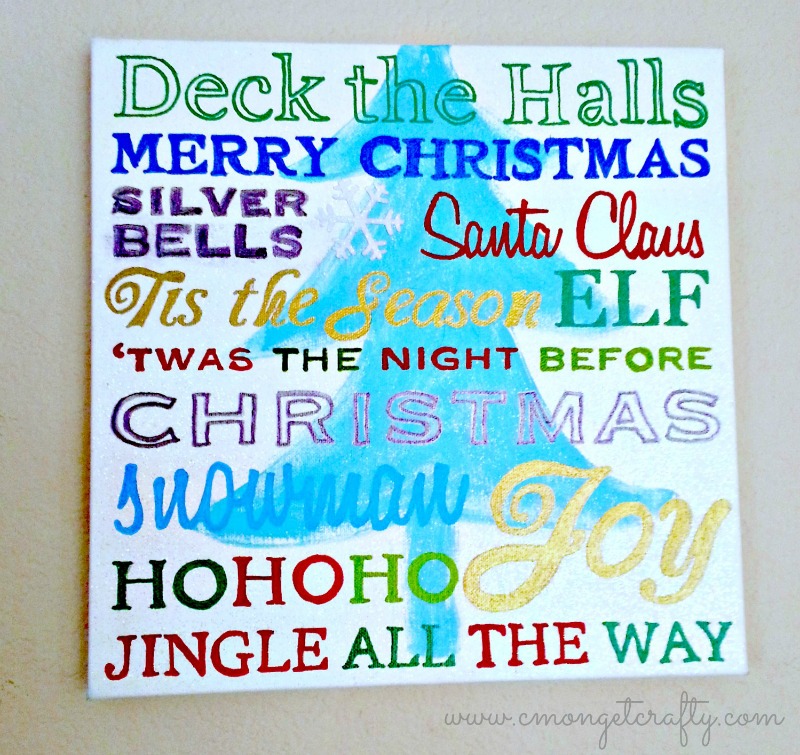 Deck the Halls
MERRY CHRISTMAS
SILVER
BELLS
Santa Claus
'Tis the Season ELF
‘TWAS THE NIGHT BEFORE
CHRISTMAS
Snowman
Joy
HOHOHO
JINGLE ALL THE WAY
www.cmongetcrafty.com